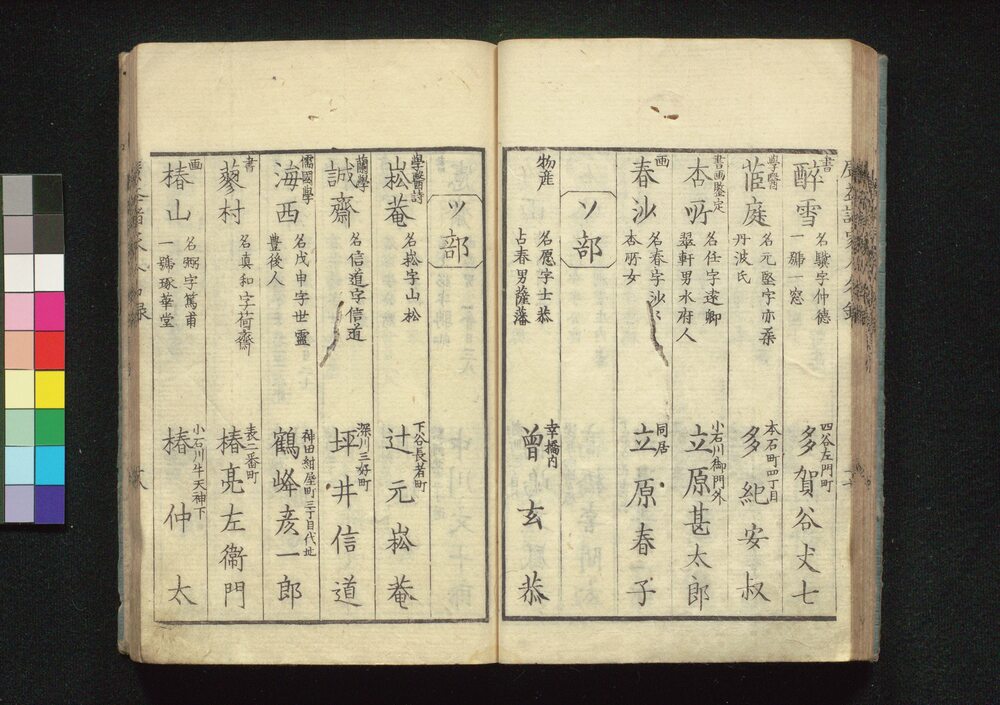 書
醉雪
名駿字仲德
一號一窓
四谷左門町
多賀谷丈七
學醫
茝庭
名元堅字亦柔
丹波氏
本石町四丁目
多紀安叔
書画鑒定
杏所
名任字遠卿
翠軒男水府人
小石川御門外
立原甚太郎
画
春沙
名春字沙々
杏所女
同居
立原春子
ソ部
物産
名愿字士恭
占春男薩藩
幸橋内
曾玄恭
ツ部
學醫詩
崧菴
名崧字山松
下谷長者町
辻元崧菴
蘭學
誠齋
名信道字信道
深川三好町
坪井信道
儒國學
海西
名戊申字世靈
豊後人
神田紺屋町三丁目代地
鶴峰彦一郎
書
蓼村
名真和字荷齋
表二番町
椿亮左衞門
画
椿山
名弼字篤甫
一號琢華堂
小石川牛天神下
椿仲太